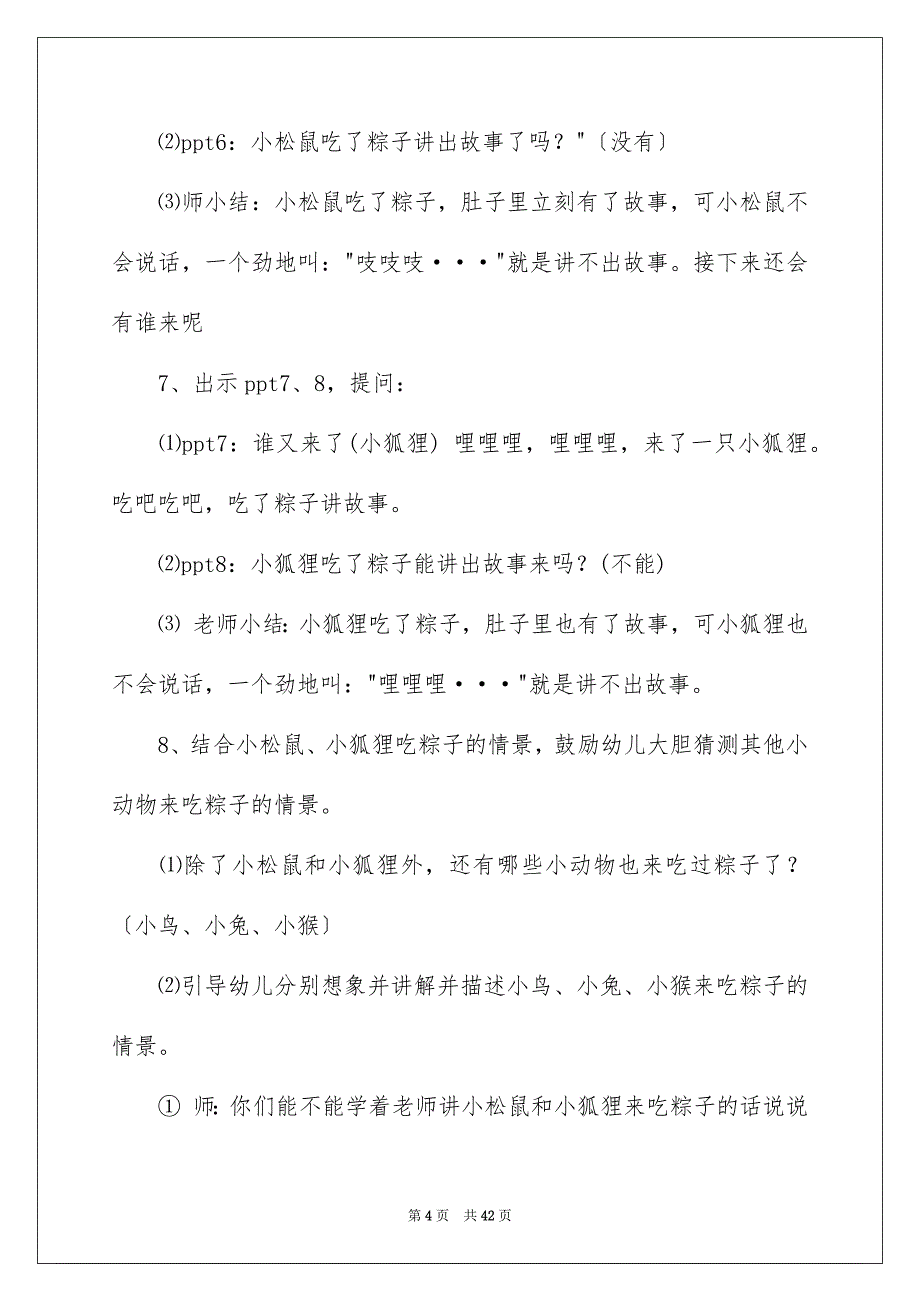 ⑵ppt6：小松鼠吃了粽子讲出故事了吗？"〔没有〕
⑶师小结：小松鼠吃了粽子，肚子里立刻有了故事，可小松鼠不
会说话，一个劲地叫："吱吱吱···"就是讲不出故事。接下来还会
有谁来呢
7、出示 ppt7、8，提问：
⑴ppt7：谁又来了(小狐狸) 哩哩哩，哩哩哩，来了一只小狐狸。
吃吧吃吧，吃了粽子讲故事。
⑵ppt8：小狐狸吃了粽子能讲出故事来吗？(不能)
⑶ 老师小结：小狐狸吃了粽子，肚子里也有了故事，可小狐狸也
不会说话，一个劲地叫："哩哩哩···"就是讲不出故事。
8、结合小松鼠、小狐狸吃粽子的情景，鼓励幼儿大胆猜测其他小
动物来吃粽子的情景。
⑴除了小松鼠和小狐狸外，还有哪些小动物也来吃过粽子了？
〔小鸟、小兔、小猴〕
⑵引导幼儿分别想象并讲解并描述小鸟、小兔、小猴来吃粽子的
情景。
① 师：你们能不能学着老师讲小松鼠和小狐狸来吃粽子的话说说
第 4 页 共 42 页